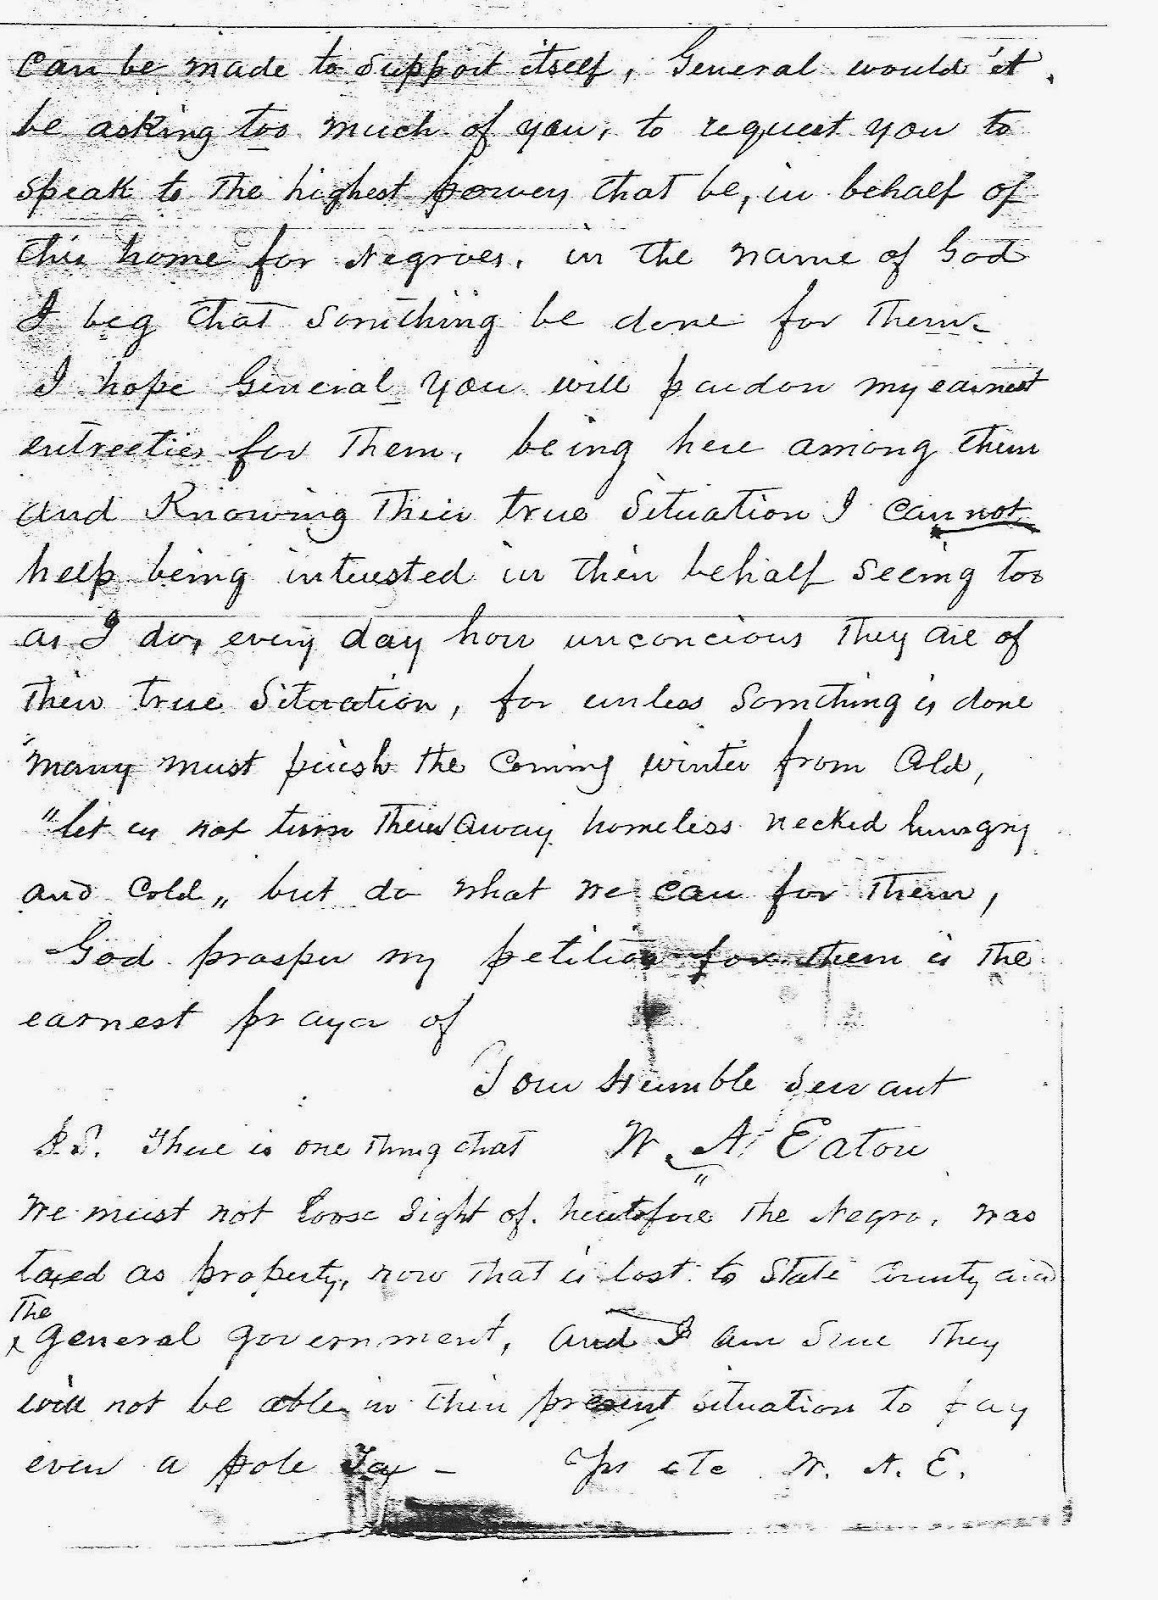 can be made to support itself, General would it
be asking too much of you, to request you to
speak to the highest powers that be, in behalf of
this home for Negroes, in the name of God
I beg that Somthing be done for them.
I hope General you will pardon my earnest
entreeties for them, being here among them
and Knowing their true Situation I cannot
help being interested in their behalf seeing too
as I do, every day how unconcious they are of
their true Situation, for unless Somthing is done
many must perish the coming winter from Cold,
"let us not turn them away homeless necked hungry
and Cold" but do what we can for them,
God prosper my petition for them is the
earnest prayer of
Your Humble Servant
W. A. Eaton
P.S. There is one thing that
we must not loose Sight of. heretofore the Negro, was
taxed as property, now that is lost to State County and
The
general government, and I am Sure they
will not be able in their present situation to pay
even a pole Tax – Yrs etc W. A. E.